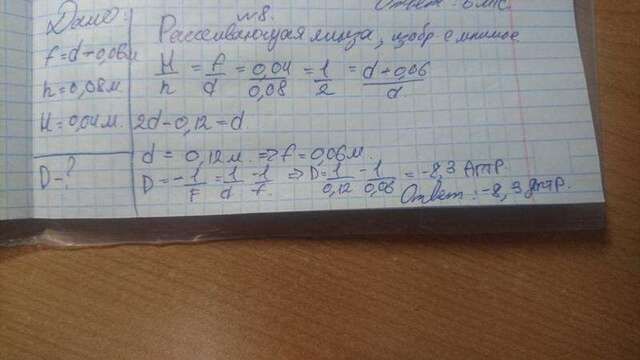 Ответ: 6 
№8.
Дано:
f=d-0,06м
h=0,08м.
H=0,04м.
D-?
Рассеивающая линза, изобр-е мнимое
H/h = f/d = 0,04/0,08 = 1/2 = d-0,06/d
2d-0,12=d
d = 0,12м. ⇒ f=0,06м.
D=-1/F=1/d-1/f ⇒ D=1/0,12-1/0,06=-8,3 дптр.
Ответ: -8,3 дптр.